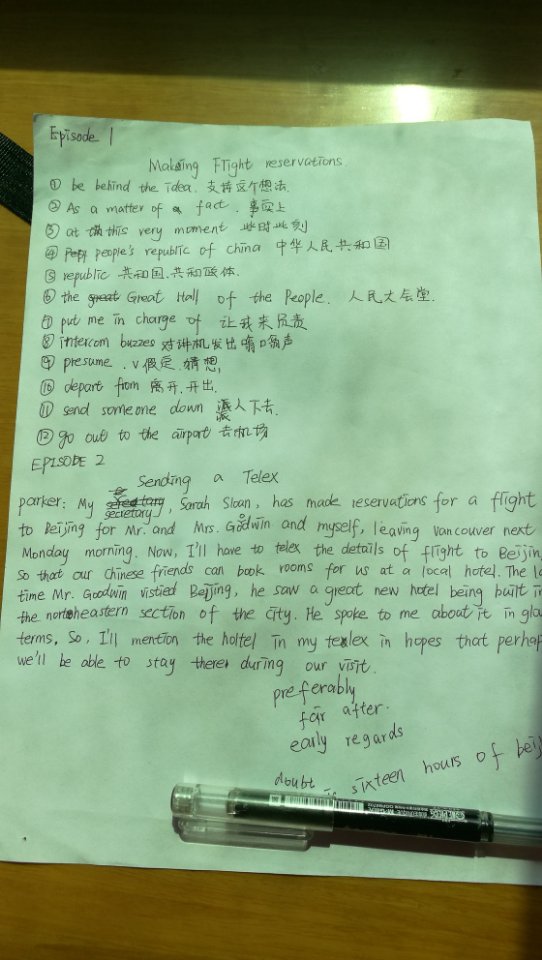 Episode 1
Making Flight reservations.
① be behind the idea. 支持这个想法
② As a matter of fact. 事实上
③ at this very moment 此时此刻
④ people's republic of china 中华人民共和国
⑤ republic 共和国.共和政体.
⑥ the Great Hall of the People. 人民大会堂.
⑦ put me in charge of 让我来负责
⑧ intercom buzzes 对讲机发出嗡嗡声
⑨ presume. v 假定.猜想.
⑩ depart from 离开.开出.
⑪ send someone down 派人下去.
⑫ go out to the airport 去机场
EPISODE 2
Sending a Telex
parker: My secretary, Sarah Sloan, has made reservations for a flight
to Beijing for Mr. and Mrs. Godwin and myself, leaving vancouver next
Monday morning. Now, I'll have to telex the details of flight to Beijing
so that our chinese friends can book rooms for us at a local hotel. The
time Mr. Goodwin vistied Beijing, he saw a great new hotel being built
the northeastern section of the city. He spoke to me about it in
terms, So, I'll mention the holtel in my telex in hopes that
we'll be able to stay there during our visit.
preferably
far after.
early regards
doubt sixteen hours of